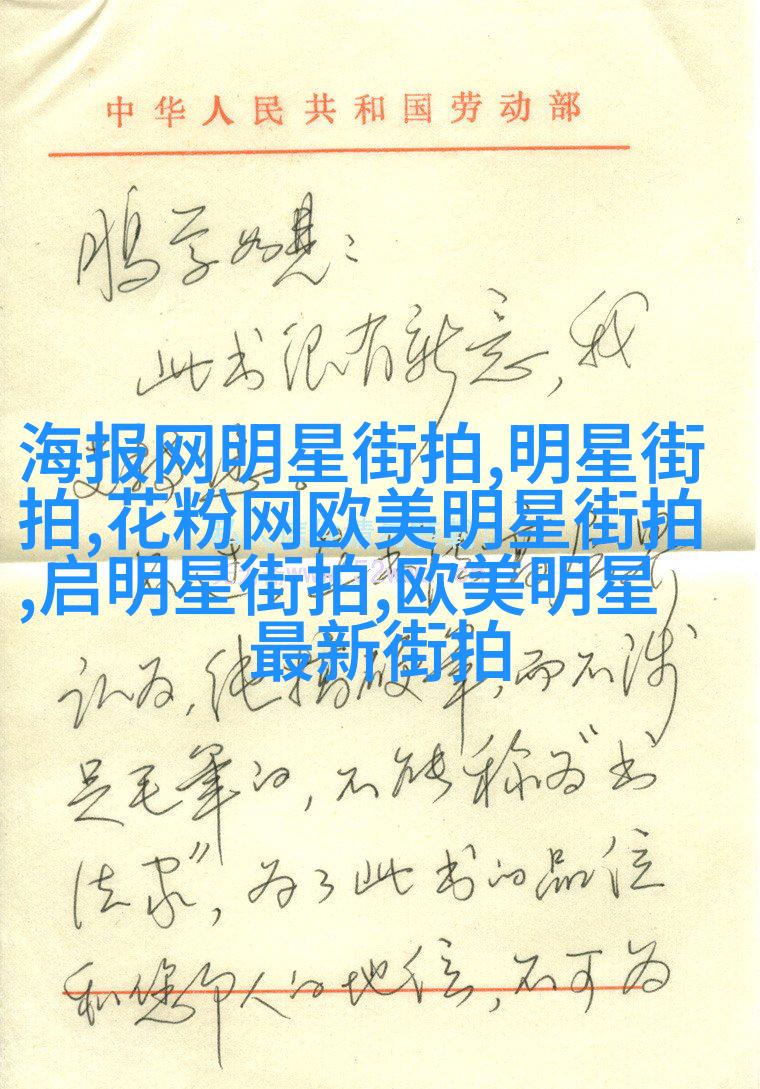 中华人民共和国劳动部
此书很有新意，我
海报网明星街拍,明星街
拍,花粉网欧美明星街拍
,启明星街拍,欧美明星
最新街拍
认为，纯搞硬筆，而不涉
足毛筆的，不能称为“书
法家”，为了此书的品位
和您个人的地位，不可为